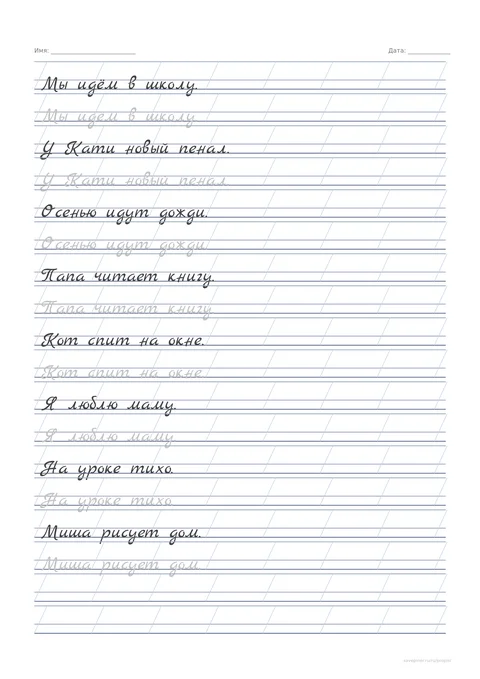 Имя: Дата:
Мы идём в школу.
Мы идём в школу
У Кати новый пенал.
У Кати новый пенал
Осенью идут дожди.
Осенью идут дожди
Папа читает книгу.
Папа читает книгу
Кот спит на окне.
Кот спит на окне
Я люблю маму.
Я люблю маму
На уроке тихо.
На уроке тихо
Миша рисует дом.
Миша рисует дом